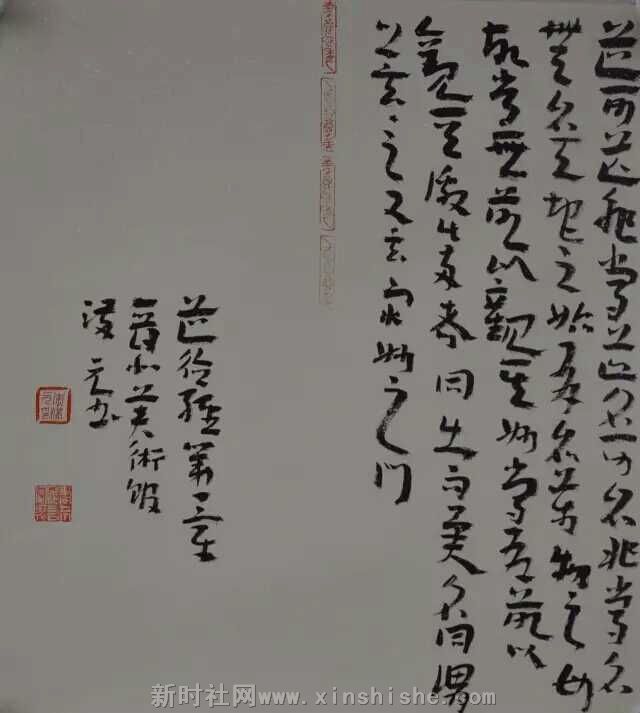 道可道非常道名可名非常名
無名天地之始有名萬物之母
故常無欲以觀其妙常有欲以
觀其徼此兩者同出而異名同謂
之玄玄之又玄眾妙之門
道德經第一章
美術館
元書
新时社网www.xinshishe.com